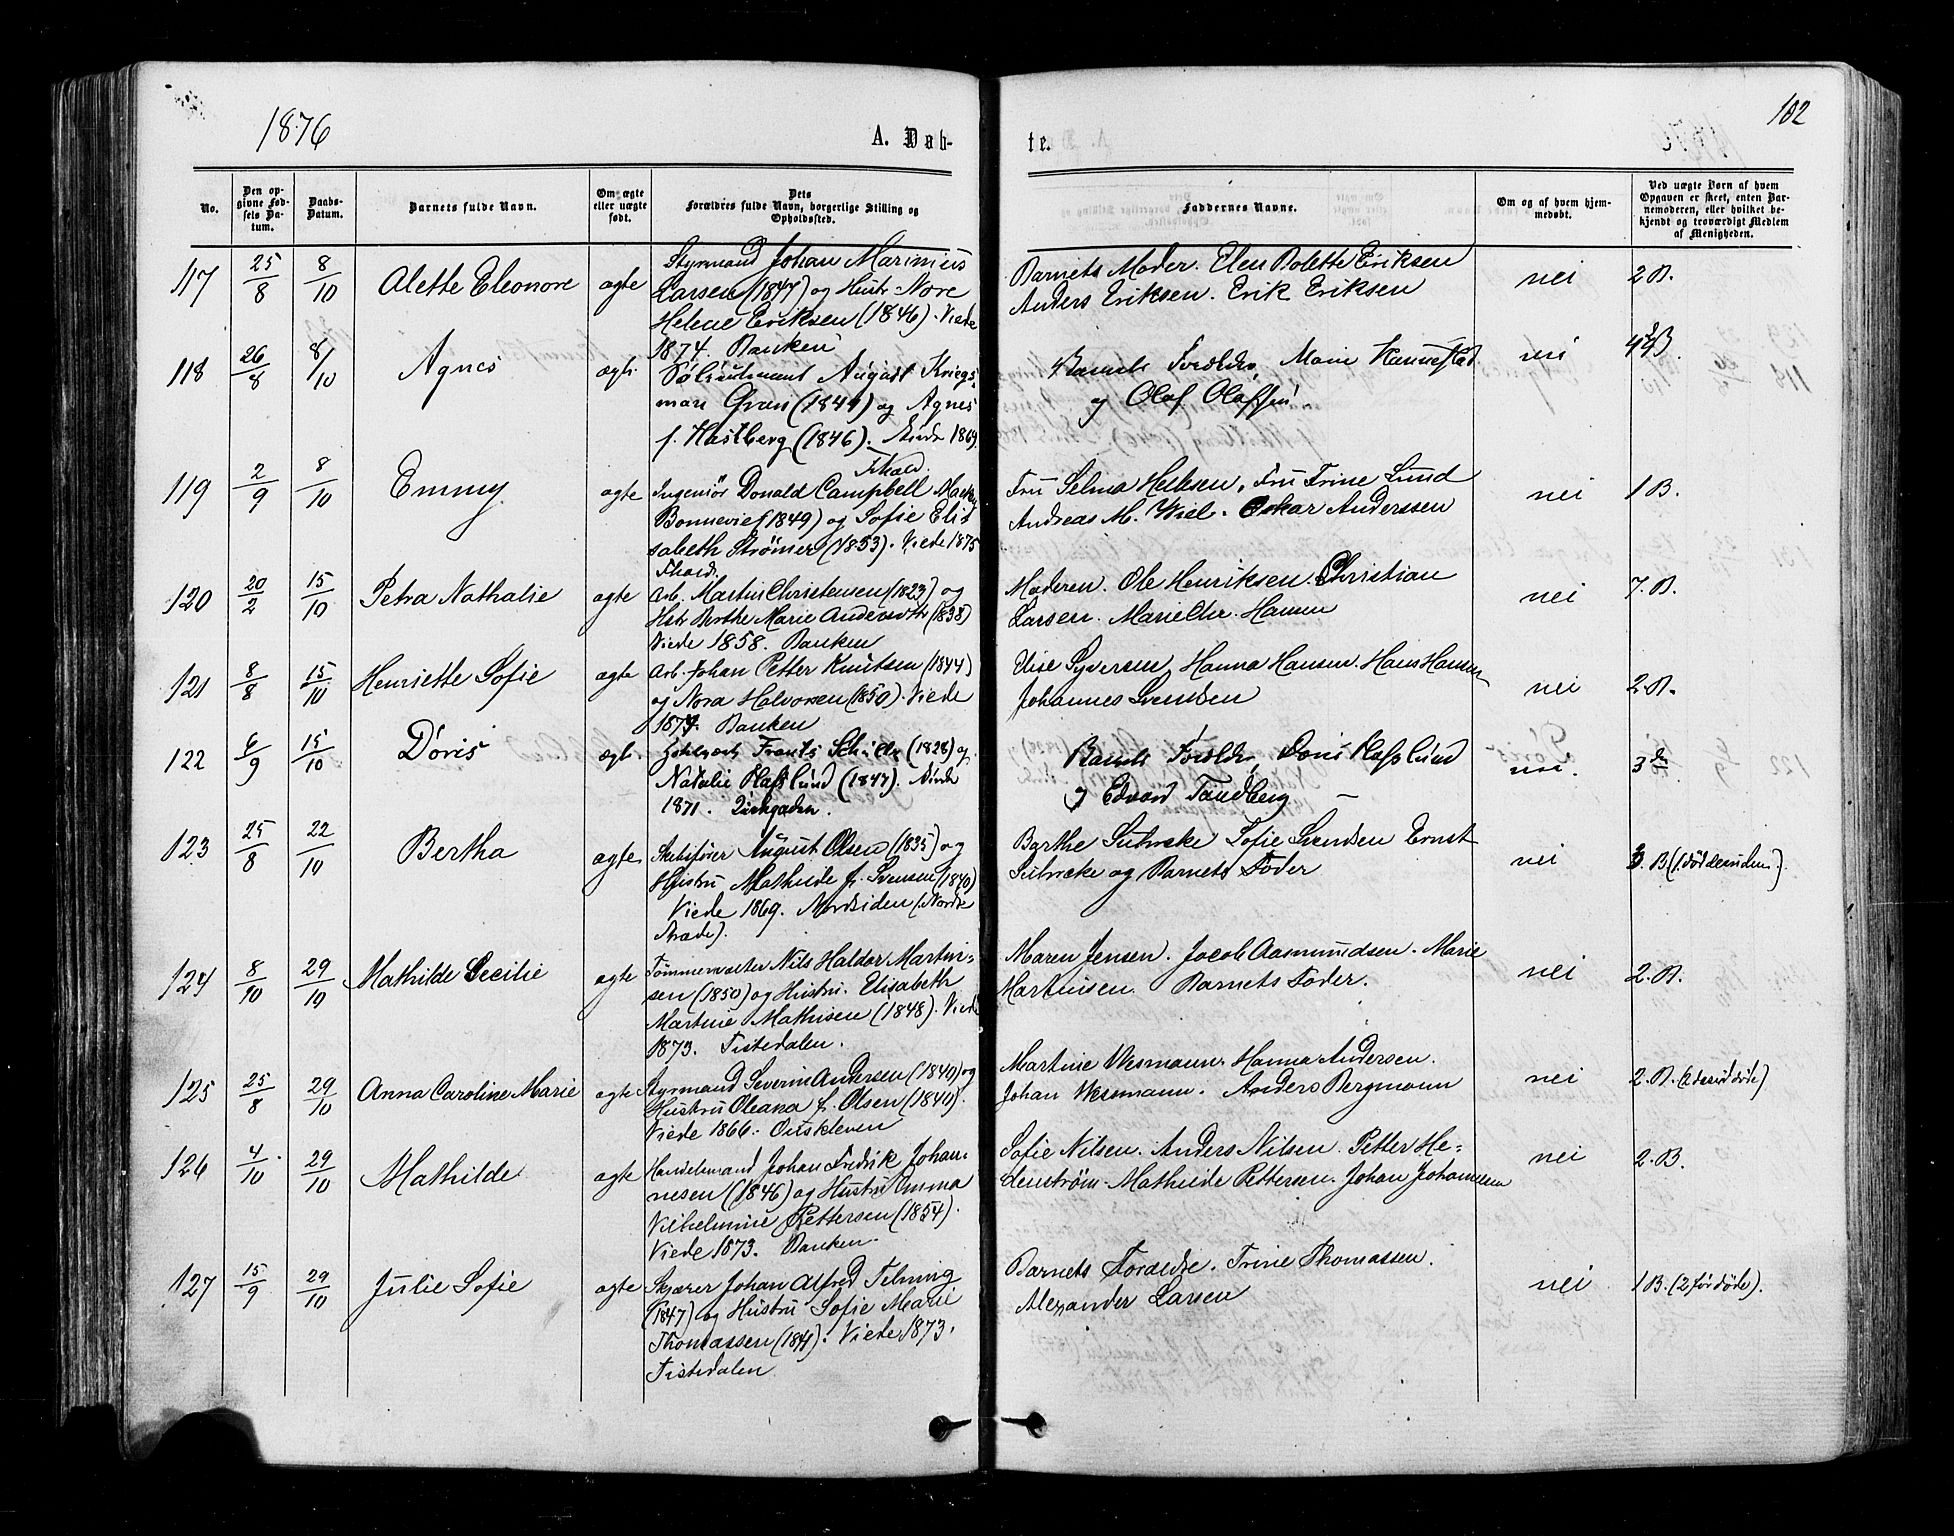 1876
A. Døb-
te.
102
No.
Den op-
givne Fød-
sels Da-
tum.
Daabs-
Datum.
Barnets fulde Navn.
Om ægte
eller uægte
født.
Dets
Forældres fulde Navn, borgerlige Stilling og
Opholdssted.
Faddernes Navne.
Om og af hvem hjem-
medøbt.
Ved uægte Børn af hvem
Opgaven er skeet, enten Bar-
nemoderen, eller hvilket be-
kjendt og troværdigt Medlem
af Menigheden.
117 25/8 8/10 Alette Eleonore ægte
Styrmand Johan Marinius
Larsen (1847) og Hustr. Nore
Helene Eriksen (1846). Viede
1874. Banken
Barnets Moder. Elen Bolette Eriksen
Anders Eriksen. Erik Eriksen
nei 2 B.
118 26/8 8/10 Agnes ægt.
August Kriegs
man Gran (1844) og Agnes
f. Hastberg (1846). Viede 1869.
Fhald.
Barnets Foreldre, Marie Hannestad
og Olaf Olafsen.
nei
119 2/9 8/10 Emmy ægte
Ingeniør Donald Campbell
Bonnevie (1849) og Sofie Elis
sabeth Strømer (1853). Viede 1875
Fhald.
Fru Selma Helesen. Fru Trine Lund
Andreas M. Wiel. Oskar Anderssen
nei 1 B.
120 20/2 15/10 Petra Nathalie ægte
Arb. Martin Christensen (1823) og
Hstr Berthe Marie Andersdtr (1838)
Viede 1858. Banken
Moderen. Ole Henriksen. Christian
Larsen. Marie Chr. Hansen
nei 7. B.
121 8/8 15/10 Henriette Sofie ægte
Arb. Johan Petter Knutsen (1844)
og Nora Halvorsen (1850). Viede
1874. Banken
Syversen, Hanna Hansen. Hans Hansen
Johannes Svendsen
nei 2. B.
122 6/9 15/10 Doris ægt.
Frants (1828) og
Natalie Hafslund (1847). Viede
1871.
Barnets Foreldre, Doris Hafslund
og Edvard Tandberg
nei. 3
123 25/8 22/10 Bertha ægte
Skibsfører August Olsen (1835) og
Hustru Mathilde f. Svensen (1840)
Viede 1869. Nordsiden (Nordre
Strede).
Berthe Sofie Svendsen Ernst
og Barnets Fader
nei 3. B (1 død desuden).
124 8/10 29/10 Mathilde Cecilie ægte
Tømmermarker Nils Haldor Martin-
sen (1850) og Hustru. Elisabeth
Martine Mathisen (1848). Viede
1873. Tistedalen.
Maren Jensen. Jacob Aasmundsen. Marie
Martinsen. Barnets Fader.
nei 2. B.
125 25/8 29/10 Anna Caroline Marie ægte
Styrmand Severin Andersen (1840) og
Hustru Oleana f. Olsen (1840).
Viede 1866. Ouskleven
Martine Wesmann. Hanna Andersen.
Johan Wesmann. Anders Bergmann
nei 2. B.
126 4/10 29/10 Mathilde ægte
Handelsmand Johan Fredrik Johan-
nesen (1846) og Hustru Emma
Vilhelmine Pettersen (1854).
Viede 1873. Banken.
Sofie Nilsen. Anders Nilsen. Petter He-
denstrøm. Mathilde Pettersen. Johan Johannesen
nei 2. B.
127 15/9 29/10 Julie Sofie ægte
Skjærer Johan Alfred
(1847) og Hustru Sofie Marie
Thomassen (1841). Viede 1873.
Tistedalen
Barnets Forældre. Trine Thomassen.
Alexander Larsen
nei 1 B. (2 før døde).